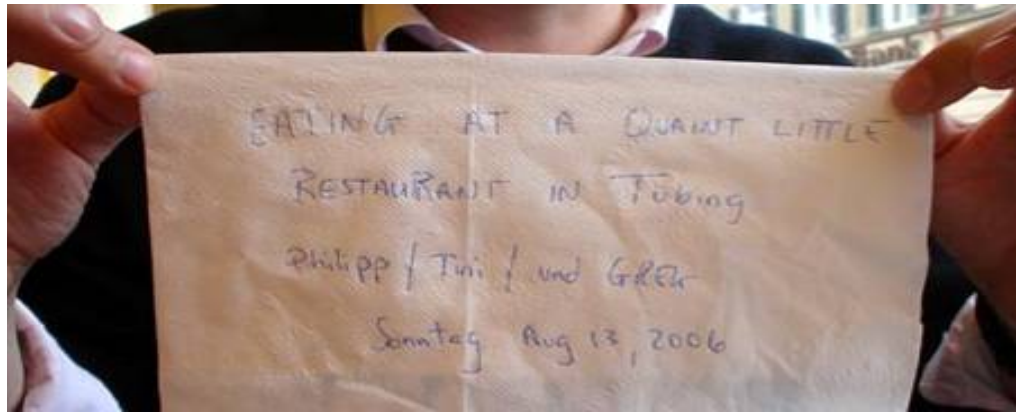 EATING AT A QUAINT LITTLE
RESTAURANT IN Tübing
Philipp / Tini / und GREG
Sonntag Aug 13, 2006